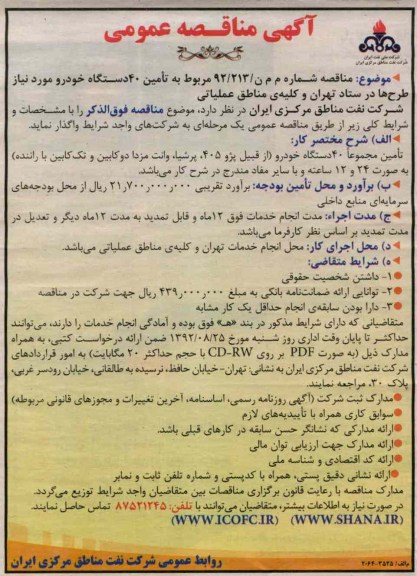 آگهی مناقصه عمومی
شرکت ملی نفت ایران
شرکت نفت مناطق مرکزی ایران
موضوع: مناقصه شماره م م ن/۹۲/۲۱۳ مربوط به تأمین ۴۰دستگاه خودرو مورد نیاز
طرح‌ها در ستاد تهران و کلیه‌ی مناطق عملیاتی
شرکت نفت مناطق مرکزی ایران در نظر دارد، موضوع مناقصه فوق‌الذکر را با مشخصات و
شرایط کلی زیر از طریق مناقصه عمومی یک مرحله‌ای به شرکت‌های واجد شرایط واگذار نماید.
الف) شرح مختصر کار:
تأمین مجموعاً ۴۰دستگاه خودرو (از قبیل پژو ۴۰۵، پرشیا، وانت مزدا دوکابین و تک‌کابین با راننده)
به صورت ۲۴ و ۱۲ ساعته و با سایر مفاد مندرج در شرح کار می‌باشد.
ب) برآورد و محل تأمین بودجه: برآورد تقریبی ۲۱٫۷۰۰٫۰۰۰٫۰۰۰ ریال از محل بودجه‌های
سرمایه‌ای منابع داخلی
ج) مدت اجراء: مدت انجام خدمات فوق ۱۲ماه و قابل تمدید به مدت ۱۲ماه دیگر و تعدیل در
مدت تمدید بر اساس نظر کارفرما می‌باشد.
د) محل اجرای کار: محل انجام خدمات تهران و کلیه‌ی مناطق عملیاتی می‌باشد.
ه) شرایط متقاضی:
۱- داشتن شخصیت حقوقی
۲- توانایی ارائه ضمانت‌نامه بانکی به مبلغ ۴۳۹٫۰۰۰٫۰۰۰ ریال جهت شرکت در مناقصه
۳- دارا بودن سابقه‌ی انجام حداقل یک کار مشابه
متقاضیانی که دارای شرایط مذکور در بند «هـ» فوق بوده و آمادگی انجام خدمات را دارند، می‌توانند
حداکثر تا پایان وقت اداری روز شنبه مورخ ۱۳۹۲/۰۸/۲۵ ضمن ارائه درخواست کتبی، به همراه
مدارک ذیل (به صورت PDF بر روی CD-RW با حجم حداکثر ۲۰ مگابایت) به امور قراردادهای
شرکت نفت مناطق مرکزی ایران به نشانی: تهران- خیابان حافظ، نرسیده به طالقانی، خیابان رودسر غربی،
پلاک ۳۰، مراجعه نمایند.
مدارک ثبت شرکت (آگهی روزنامه رسمی، اساسنامه، آخرین تغییرات و مجوزهای قانونی مربوطه)
سوابق کاری همراه با تأییدیه‌های لازم
ارائه مدارکی که نشانگر حسن سابقه در کارهای قبلی باشد.
ارائه مدارک جهت ارزیابی توان مالی
ارائه کد اقتصادی و شناسه ملی
ارائه نشانی دقیق پستی، همراه با کدپستی و شماره تلفن ثابت و نمابر
مدارک مناقصه با رعایت قانون برگزاری مناقصات بین متقاضیان واجد شرایط توزیع می‌گردد.
در صورت نیاز به اطلاعات بیشتر، متقاضیان می‌توانند با تلفن: ۸۷۵۲۱۲۴۵ تماس حاصل نمایند.
(WWW.ICOFC.IR) (WWW.SHANA.IR)
روابط عمومی شرکت نفت مناطق مرکزی ایران
م‌الف: ۲۰۶۴-۳۵۲۵